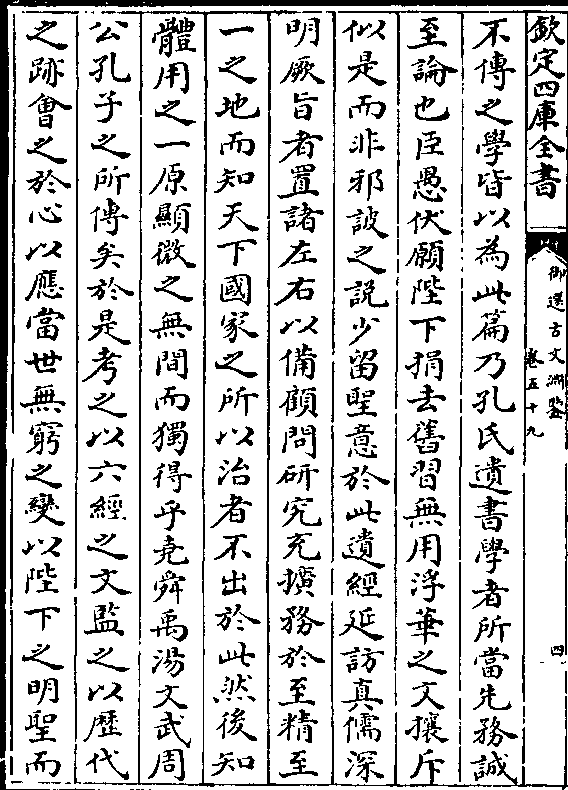 欽定四庫全書
御選古文淵鑒
卷五十九
四
不傳之學皆以為此篇乃孔氏遺書學者所當先務誠
至論也臣愚伏願陛下捐去舊習無用浮華之文攘斥
似是而非邪詖之說少留聖意於此遺經延訪真儒深
明厥旨者置諸左右以備顧問研究充擴務於至精至
一之地而知天下國家之所以治者不出於此然後知
體用之一原顯微之無間而獨得乎堯舜禹湯文武周
公孔子之所傳矣於是考之以六經之文監之以歴代
之跡㑹之於心以應當世無窮之變以陛下之明聖而